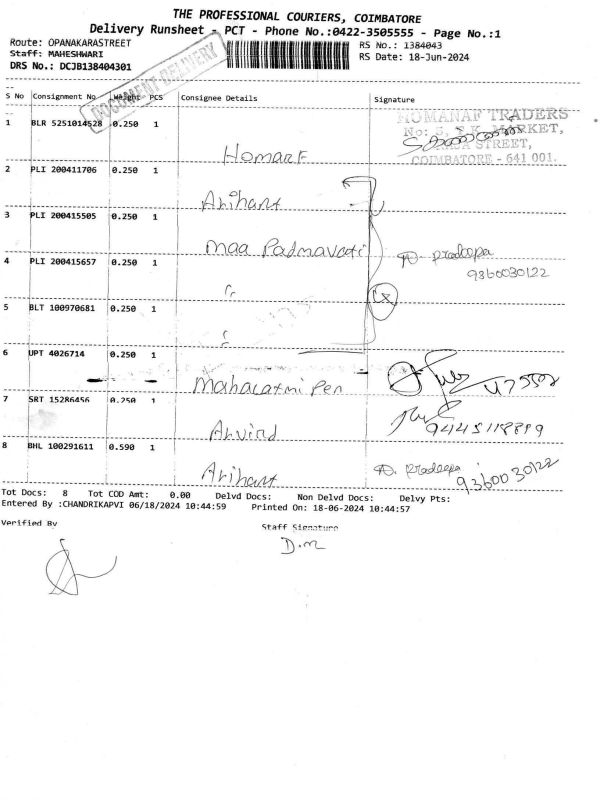 THE PROFESSIONAL COURIERS, COIMBATORE
Delivery Runsheet - PCT - Phone No.:0422-3505555 - Page No.:1
Route: OPANAKARASTREET
Staff: MAHESHWARI
DRS No.: DCJB138404301
RS No.: 1384043
RS Date: 18-Jun-2024
DOCUMENT DELIVERY
S No Consignment No Weight PCS Consignee Details Signature
1 BLR 5251014528 0.250 1
HOMANAF TRADERS
MARKET,
STREET,
COIMBATORE - 641 001.
2 PLI 200411706 0.250 1 Arihant
3 PLI 200415505 0.250 1 Maa Padmavati
pradeepa
9360030122
4 PLI 200415657 0.250 1
5 BLT 100970681 0.250 1
6 UPT 4026714 0.250 1
7 SRT 15286456 0.250 1 Arvind
8 BHL 100291611 0.590 1 Arihant
pradeepa 9360030122
Tot Docs: 8 Tot COD Amt: 0.00 Delvd Docs: Non Delvd Docs: Delvy Pts:
Entered By :CHANDRIKAPVI 06/18/2024 10:44:59 Printed On: 18-06-2024 10:44:57
Verified By Staff Signature
D.M